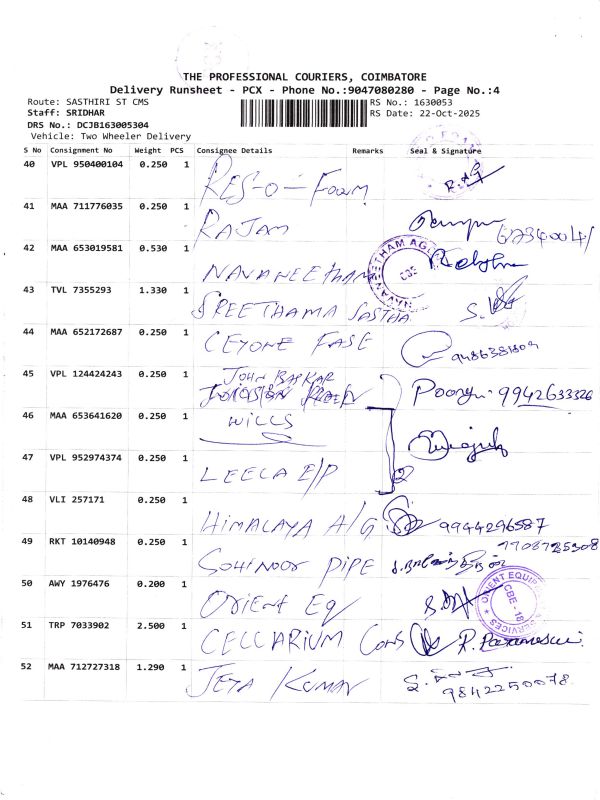 THE PROFESSIONAL COURIERS, COIMBATORE
Delivery Runsheet - PCX - Phone No.:9047080280 - Page No.:4
Route: SASTHIRI ST CMS RS No.: 1630053
Staff: SRIDHAR RS Date: 22-Oct-2025
DRS No.: DCJB163005304
Vehicle: Two Wheeler Delivery
S No Consignment No Weight PCS Consignee Details Remarks Seal & Signature
40 VPL 950400104 0.250 1
41 MAA 711776035 0.250 1 RAJAM
42 MAA 653019581 0.530 1 NAVANEETHAM
NAVANEETHAM CBE
43 TVL 7355293 1.330 1 SREETHAMA SASTHA
44 MAA 652172687 0.250 1 CEYONE FASE
45 VPL 124424243 0.250 1 JOHN BASKAR
9942633326
46 MAA 653641620 0.250 1 WILLS
47 VPL 952974374 0.250 1 LEELA E/P 2
48 VLI 257171 0.250 1 HIMALAYA A/G 9944296587
49 RKT 10140948 0.250 1 SOHINOOR PIPE
50 AWY 1976476 0.200 1 ORIENT Eq
ORIENT EQUIP SERVICES CBE - 18
51 TRP 7033902 2.500 1 CELLARIUM Cons
52 MAA 712727318 1.290 1 JEYA KUMAR
9842250078